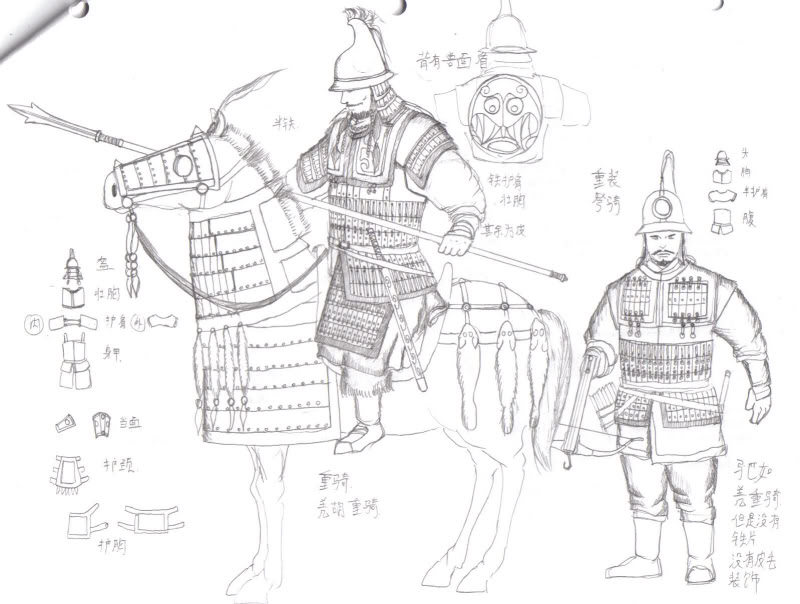 背有兽面盾
半铁
铁护肩
壮胸
其余为皮
重装
弩骑
头
胸
半护肩
腹
盔
壮胸
内
护肩
外
身甲
当面
护颈
护胸
重骑
羌胡重骑
马也如
羌重骑
但是没有
铁片
没有皮毛
装饰